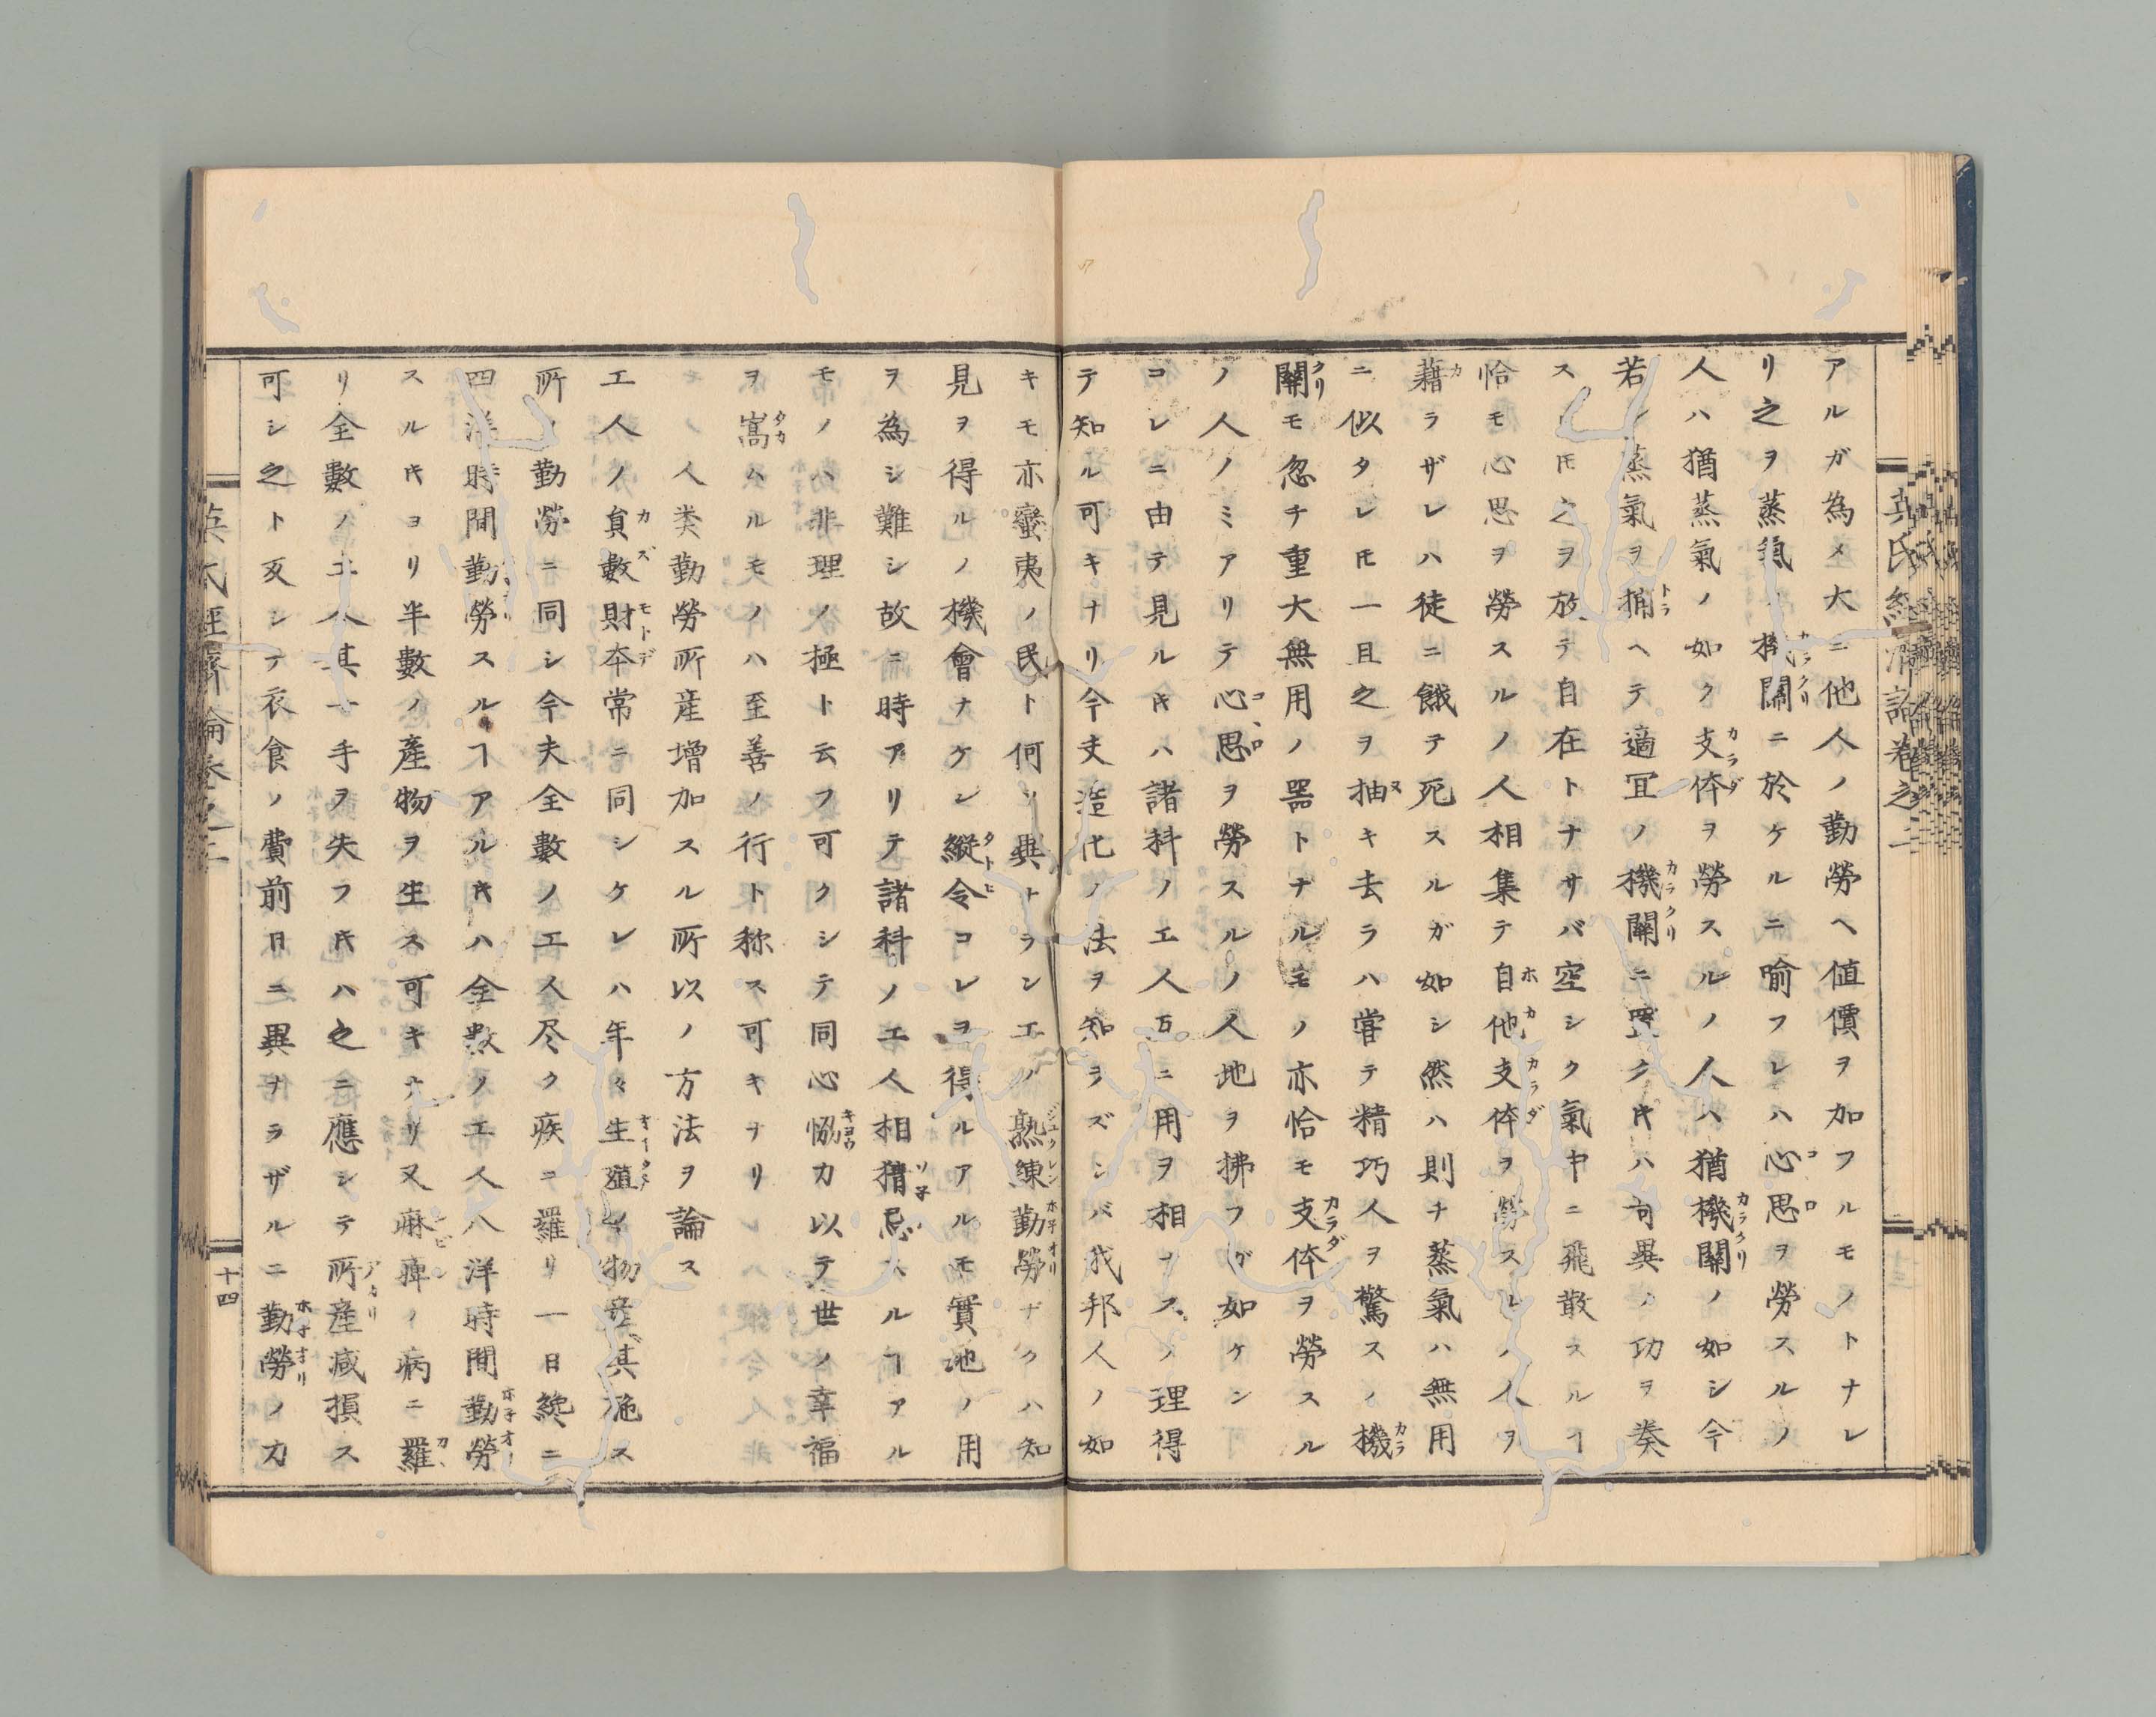 アルガ為メ大ニ他人ノ勤勞ヘ値價ヲ加フルモノトナレ
リ之ヲ蒸氣ノ機關ニ於ケルニ喻フレハ心思ヲ勞スルノ
人ハ猶蒸氣ノ如ク支体ヲ勞スルノ人ハ猶機關ノ如シ今
若シ蒸氣ヲ捕ヘテ適宜ノ機關ニ置クキハ奇異ノ功ヲ奏
スレ𪜈之ヲ放テ自在トナサバ空シク氣中ニ飛散スルヿ
恰モ心思ヲ勞スルノ人相集テ自他支体ヲ勞スルノ人ヲ
藉ラザレハ徒ニ餓テ死スルガ如シ然ハ則チ蒸氣ハ無用
ニ似タレ𪜈一旦之ヲ抽キ去ラハ嘗テ精巧人ヲ驚スノ機
關モ忽チ重大無用ノ噐トナルモノ亦恰モ支体ヲ勞スル
ノ人ノミアリテ心思ヲ勞スルノ人地ヲ拂フガ如ケン
コレニ由テ見ルキハ諸科ノ工人互ニ用ヲ相ナスノ理得
テ知ル可キナリ今支造化ノ法ヲ知ラズンバ我邦人ノ如
キモ亦蠻夷ノ民ト何ソ異トランエノ熟練勤勞ナクハ知
見ヲ得ルノ機會ナケン縱令コレヲ得ルアルモ實地ノ用
ヲ為シ難シ故ニ時アリテ諸科ノ工人相猜忌スルヿアル
モノハ非理ノ極ト云フ可クシテ同心恊力以テ世ノ幸福
ヲ嵩ムルモノハ至善ノ行ト称ス可キナリ
人类勤勞所産增加スル所以ノ方法ヲ論ス
工人ノ負數財夲常ニ同シケレハ年々生殖ノ物產其施ス
所ノ勤勞ニ同シ今夫全數ノ工人尽ク疾ニ羅リ一日纔ニ
四洋時間勤勞スルヿアルキハ全數ノ工人八洋時間勤勞
スルキヨリ半數ノ產物ヲ生ス可キナリ又麻痺ノ病ニ羅
リ全數ノ工人其一手ヲ失フキハ之ニ應シテ所產减損ス
可シ之ト反シテ衣食ノ費前日ニ異ナラザルニ勤勞ノ力
英氏経濟論巻之二
十四